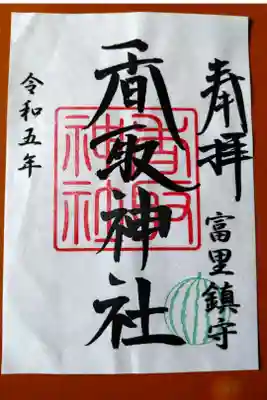 奉拝
富里鎮守
香取神社
香取神社
令和五年